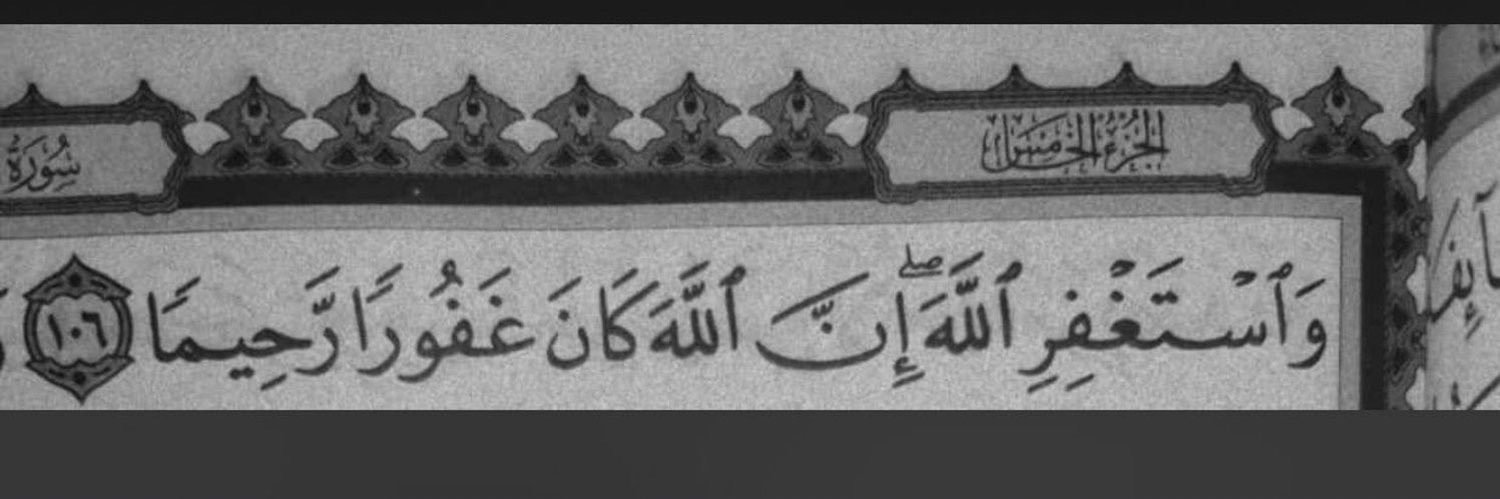 الجزء الخامس
سُورَةُ
وَٱسْتَغْفِرِ ٱللَّهَۖ إِنَّ ٱللَّهَ كَانَ غَفُورًا رَّحِيمًا ١٠٦